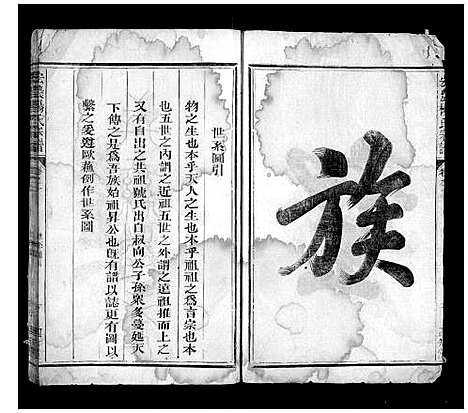 族
世系圖引
物之生也本乎天人之生也本乎祖祖之爲言宗也本
也五世之內謂之近祖五世之外謂之遠祖推而上之
又有自出之共祖虢氏出自叔向公子孫衆多蔓延天
下傳之是爲吾族始祖昇公也旣有譜以誌更有圖以
繫之爰遊歐蘇例作世系圖